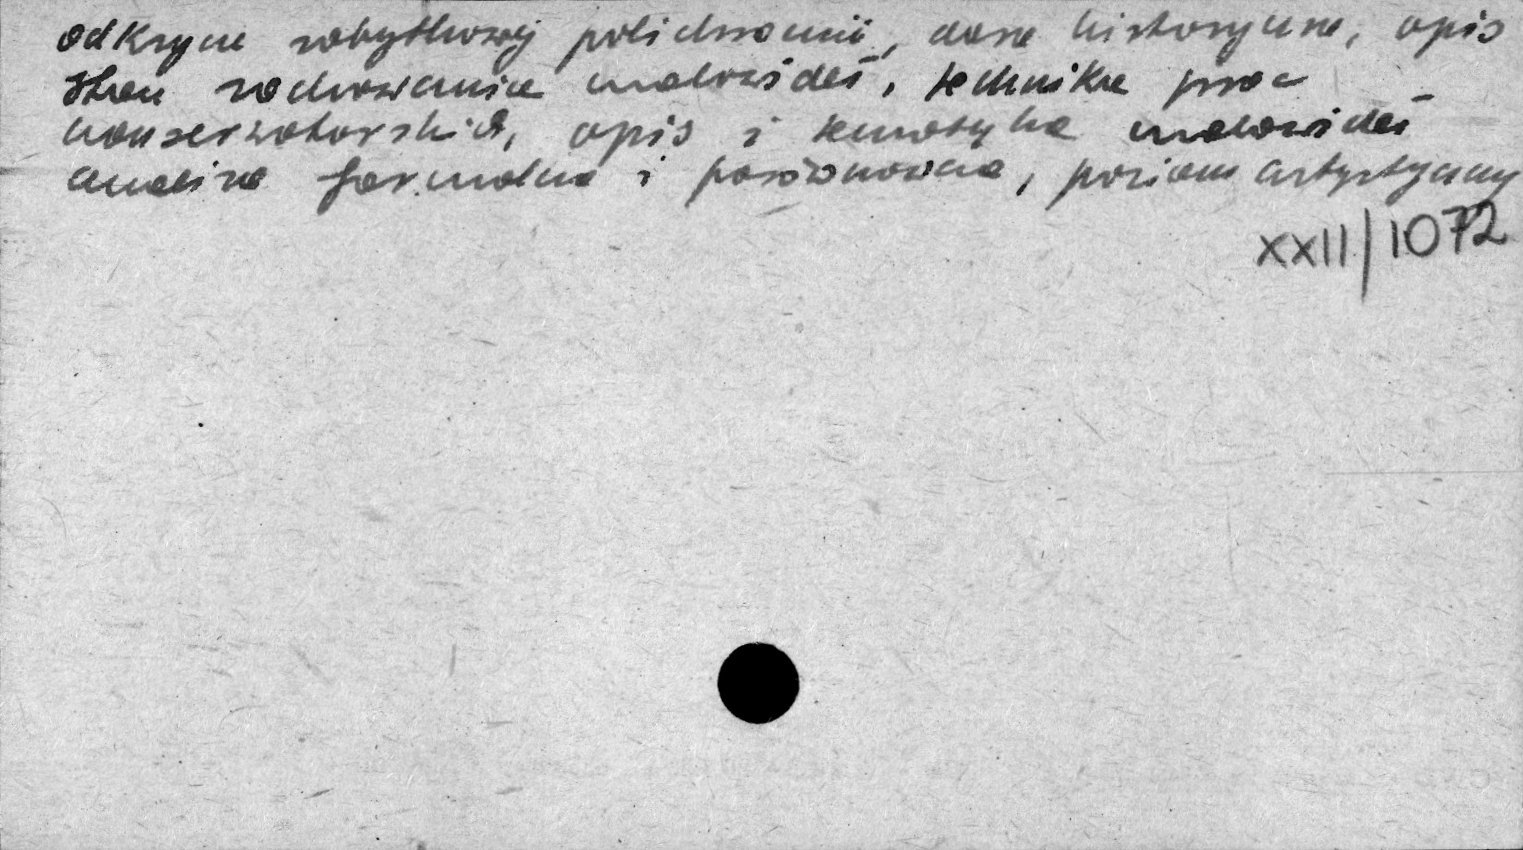 odkrycie zabytkowej polichromii, dane historyczne, opis
stan zachowania malowideł, technika prac
konserwatorskich, opis i tematyka malowideł
analiza formalna i porównawcza, poziom artystyczny
XXII/1072